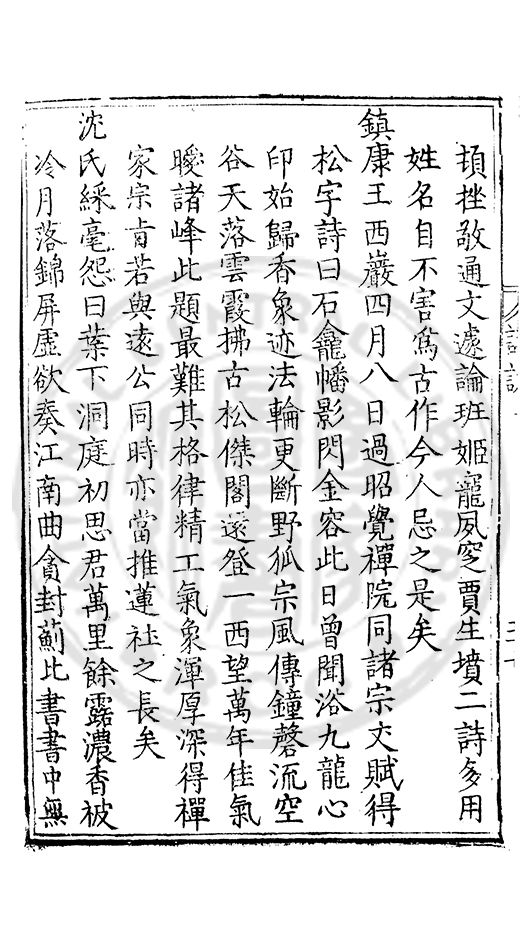 頓挫敬通文遽論班姬寵夙窆賈生墳二詩多用
姓名自不害爲古作今人忌之是矣
鎮康王西巖四月八日過昭覺禪院同諸宗丈賦得
松字詩曰石龕幡影閃金容此日曾聞浴九龍心
印始歸香象迹法輪更斷野狐宗風傳鐘磬流空
谷天落雲霞拂古松傑閣遠登一西望萬年佳氣
曖諸峰此題最難其格律精工氣象渾厚深得禪
家宗旨若與遠公同時亦當推蓮社之長矣
沈氏綵毫怨曰葉下洞庭初思君萬里餘露濃香被
冷月落錦屏虛欲奏江南曲貪封薊北書書中無